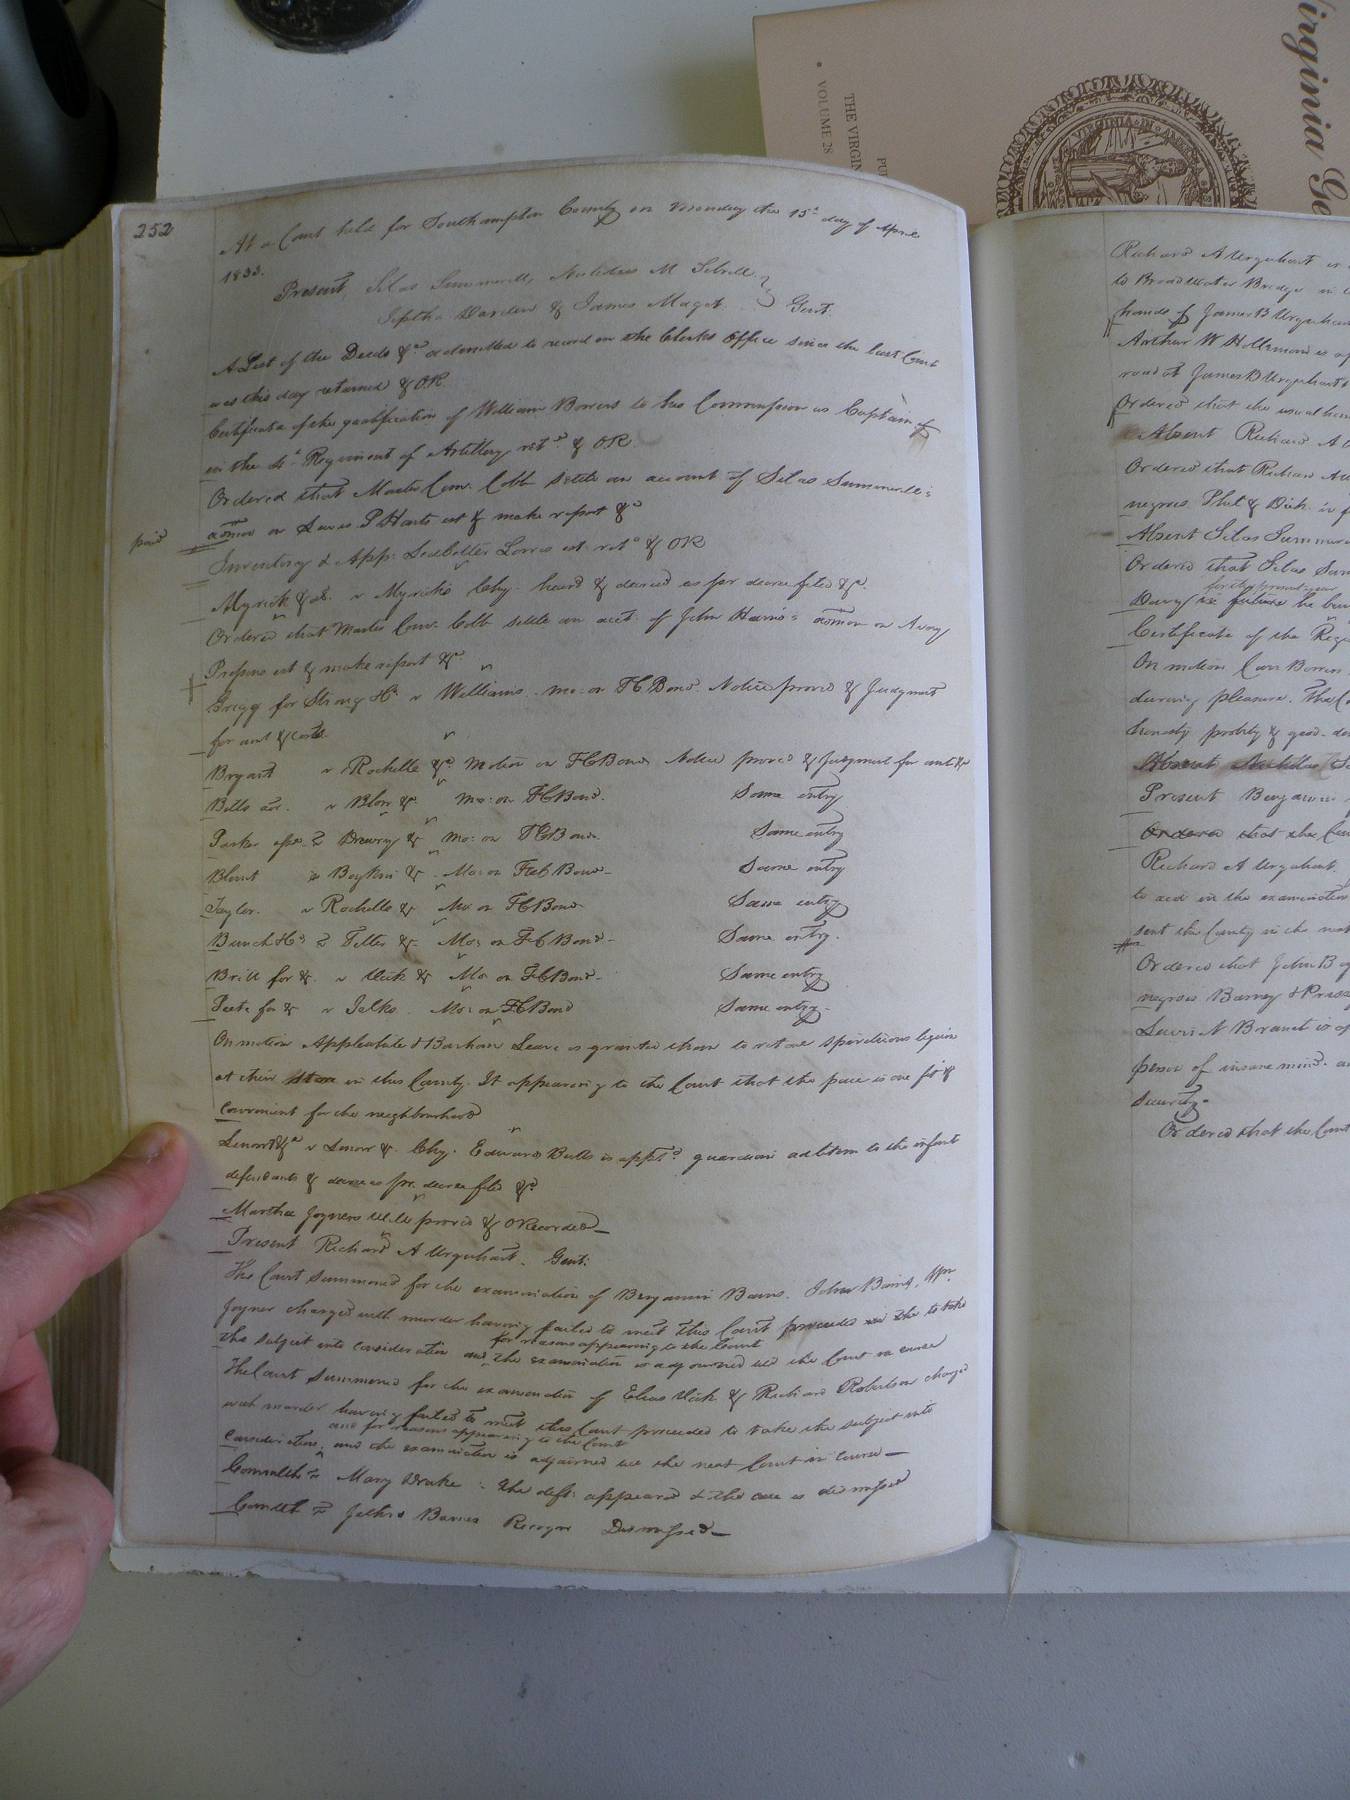 Virginia Ge
THE VIRGIN
VOLUME 28
PU
VIRGINIA
252
At a Court held for Southampton County on Monday the 15th day of April
1833.
Present, Silas Summerell, Nicholas M Sebrell
Jeptha Darden & James Maget Gent.
A List of the Deeds &c admitted to record in the Clerks Office since the last Court
was this day returned & OR.
Certificate of the qualification of William Bowers to his Commission as Captain
in the 4th Regiment of Artillery retd & OR
Ordered that Master Com. Cobb settle an account of Silas Summerell's
paid
admon on Lewis P Harts est & make report &c
Inventory & App: Ledbetter Lowes est. retd & OR
Myrick &al. v Myricks Chy. heard & decreed as per decree filed &c.
Ordered that Master Com. Cobb settle an acct. of John Harris's admon on
est & make report &c.
Gregg for v Williams. mo: on FC Bond. Notice proved & Judgment
for amt & costs.
Bryant v Rochelle &c. Motion on FC Bond Notice proved & Judgment for amt &c
Bells v Blow &c. Mo: on FC Bond. Same entry
Parker v Drewry & mo: on FC Bond Same entry
Blunt v Boykin & Mo: on FC Bond Same entry
Taylor. v Rochelle & Mo: on FC Bond Same entry
Bunch v Teller & Mo: on FC Bond Same entry.
Britt for &. v Vick & Mo: on FC Bond Same entry
Peete for & v Jelks. Mo: on FC Bond Same entry.
On motion Applewhite & Barham Leave is granted them to retail spirituous liquor
at their in this County. It appearing to the Court that the place is one fit &
convenient for the neighbourhood
v &. Chy. Edward Butts is apptd guardian adlitem to the infant
defendants & decree as pr. decree filed &c
Martha Joyners Will proved & ORecorded
Present Richard A Urquhart. Gent:
The Court Summoned for the examination of Benjamin Barns. John Barns, Wm.
Joyner charged with murder having failed to meet this Court proceeded to take
for reasons appearing to the Court
the subject into consideration and the examination is adjourned till the Court in course
The Court Summoned for the examination of Elias Vick & Richard Robertson charged
with murder having failed to meet this Court proceeded to take the subject into
and for reasons appearing to the Court
consideration, and the examination is adjourned till the next Court in course
Comwlth v Mary Drake: The deft: appeared & the case is dismissed
Comwlth v Barnes Recogn Dismissed
Richard A Urquhart
to Broadwater Bridge in
hands of James B Urquhart
Arthur W Holleman is
road at James B Urquhart
Ordered that the usual
Absent Richard A
Ordered that Richard
negroes Phil & Dick
Absent Silas Summer
Ordered that Silas Sum
for the present year
Davy future be
Certificate of the
On motion Carr Bowers
during pleasure. The
honesty probity & good
Absent Nicholas
Present Benjamin
Ordered that the
Richard A Urquhart.
to aid in the examination
sent the County in the
Ordered that John B
negroes Barney &
Lewis N is
person of insane mind.
security.
Ordered that the Court